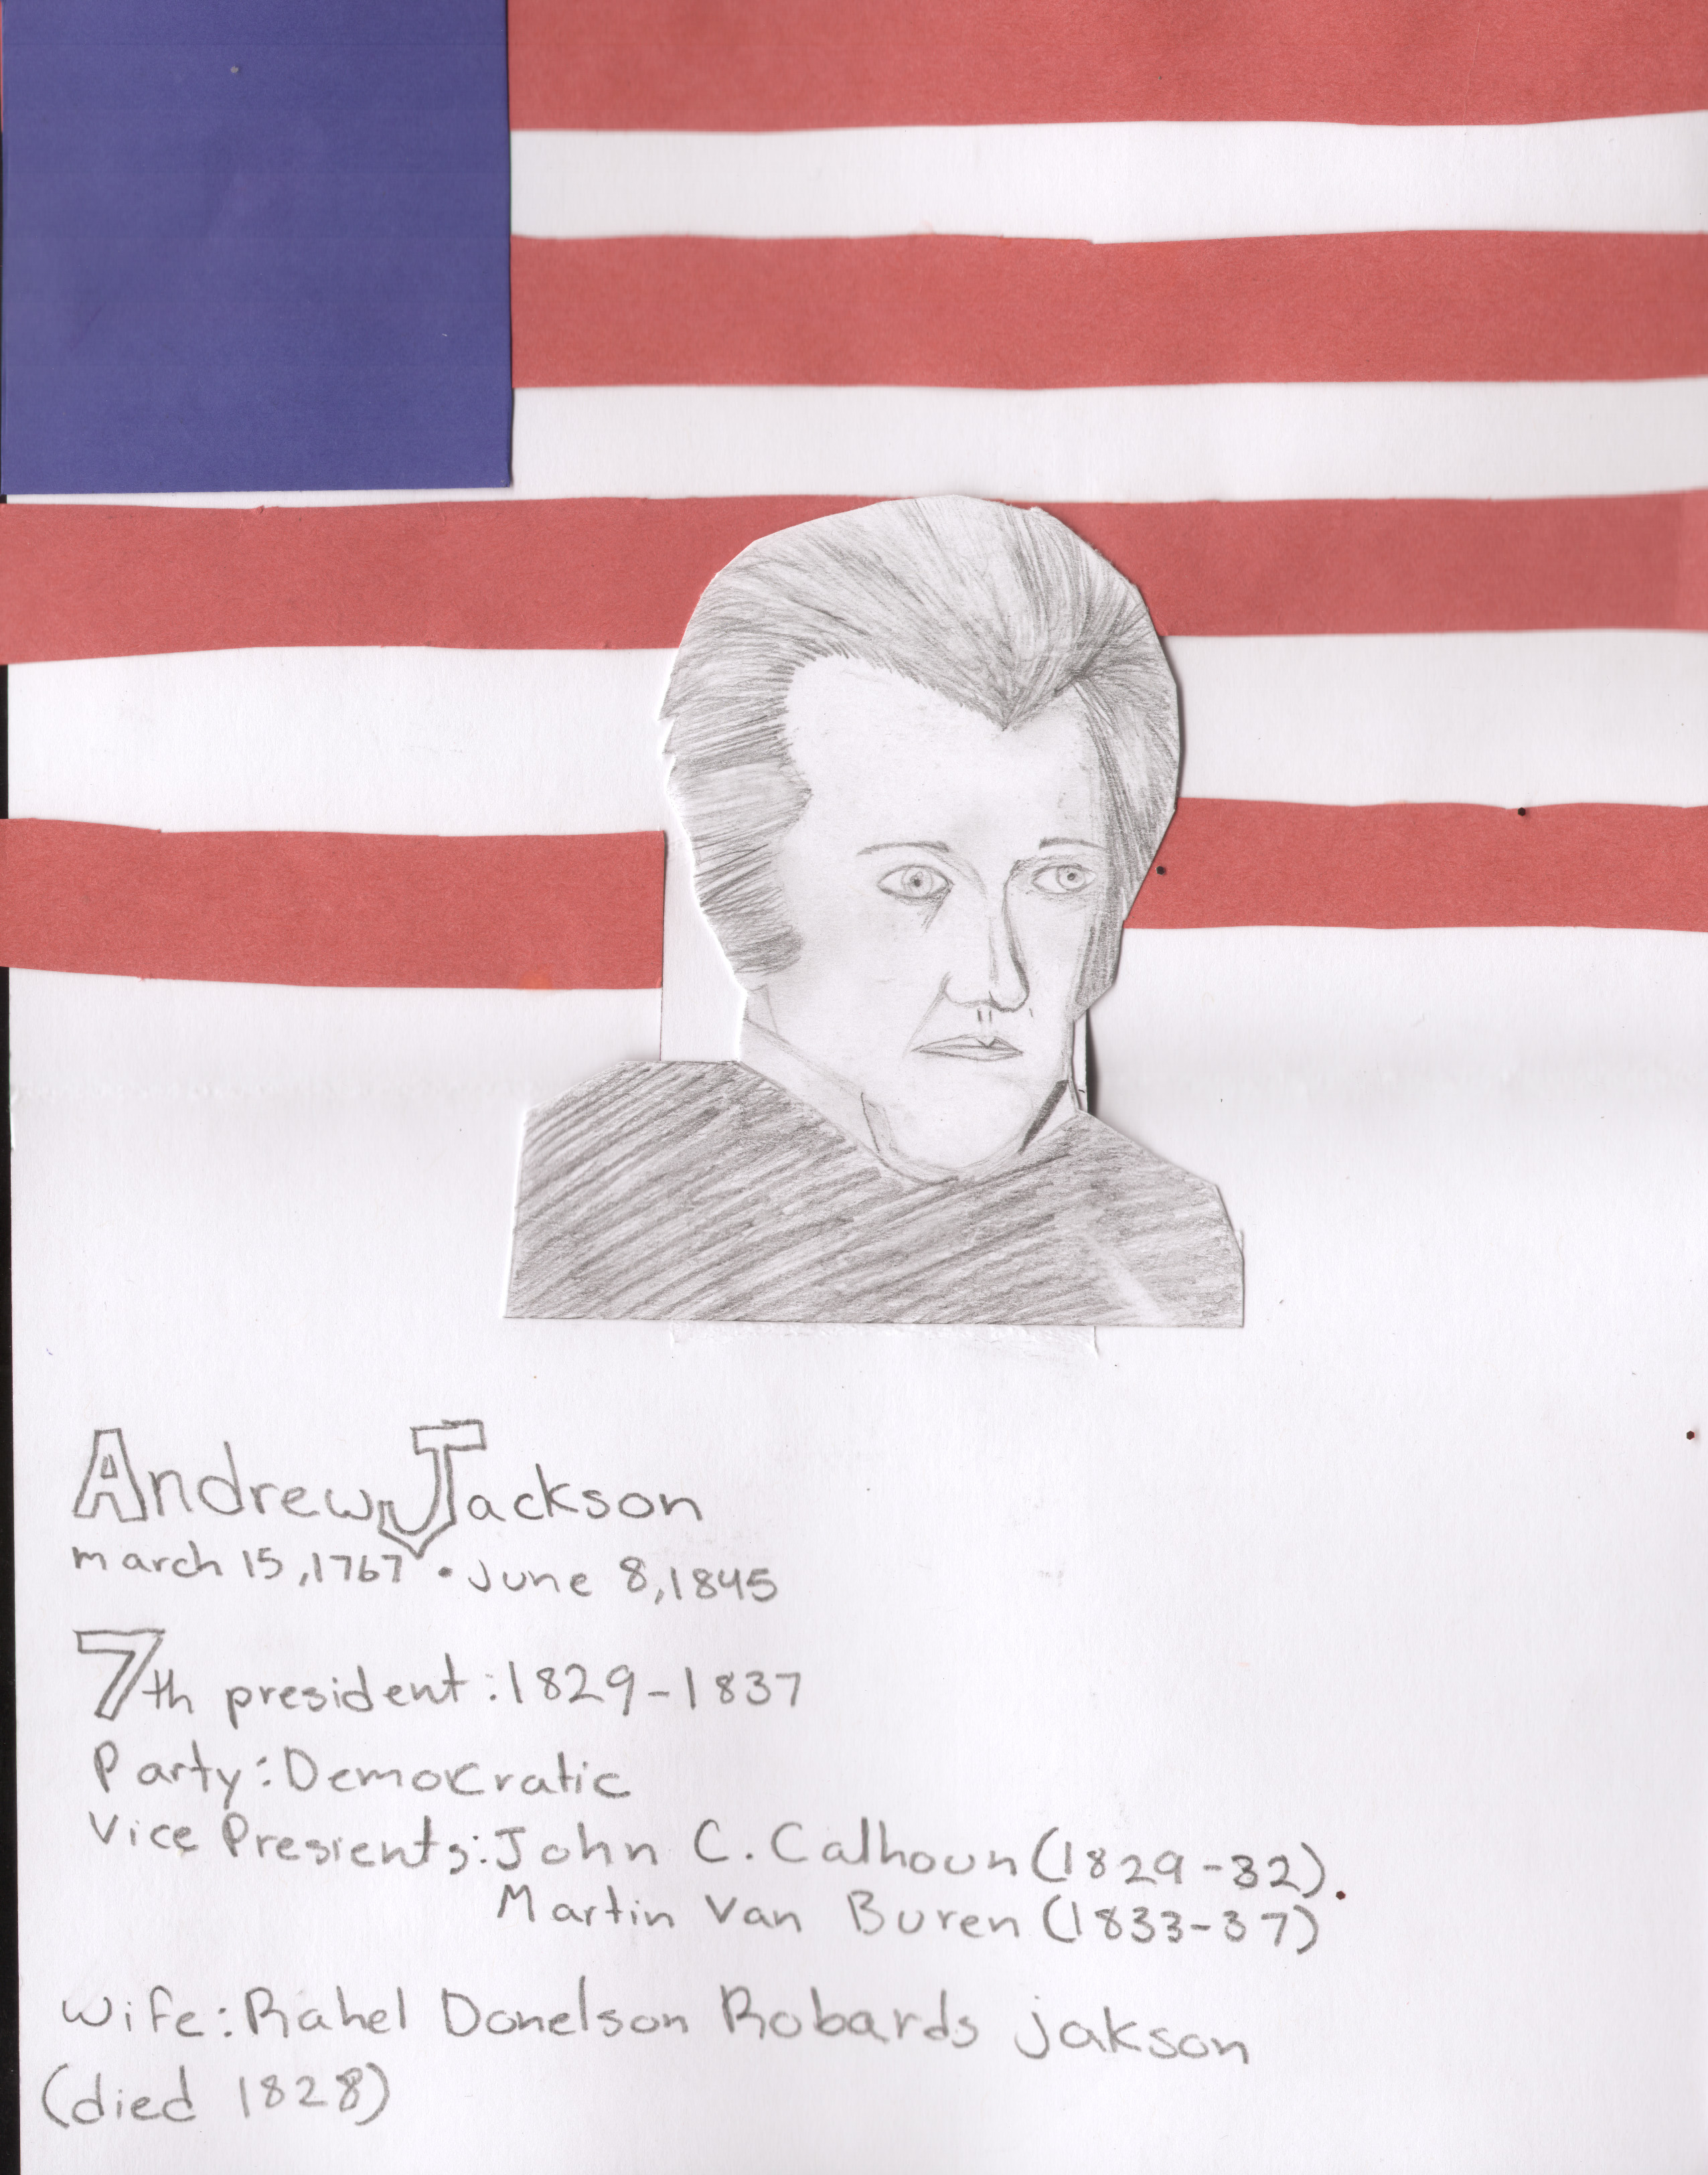 Andrew Jackson
march 15,1767 • June 8,1845
7th president:1829-1837
Party:Democratic
Vice Presients:John C. Calhoun(1829-32).
Martin Van Buren (1833-37)
wife:Rahel Donelson Robards jakson
(died 1828)